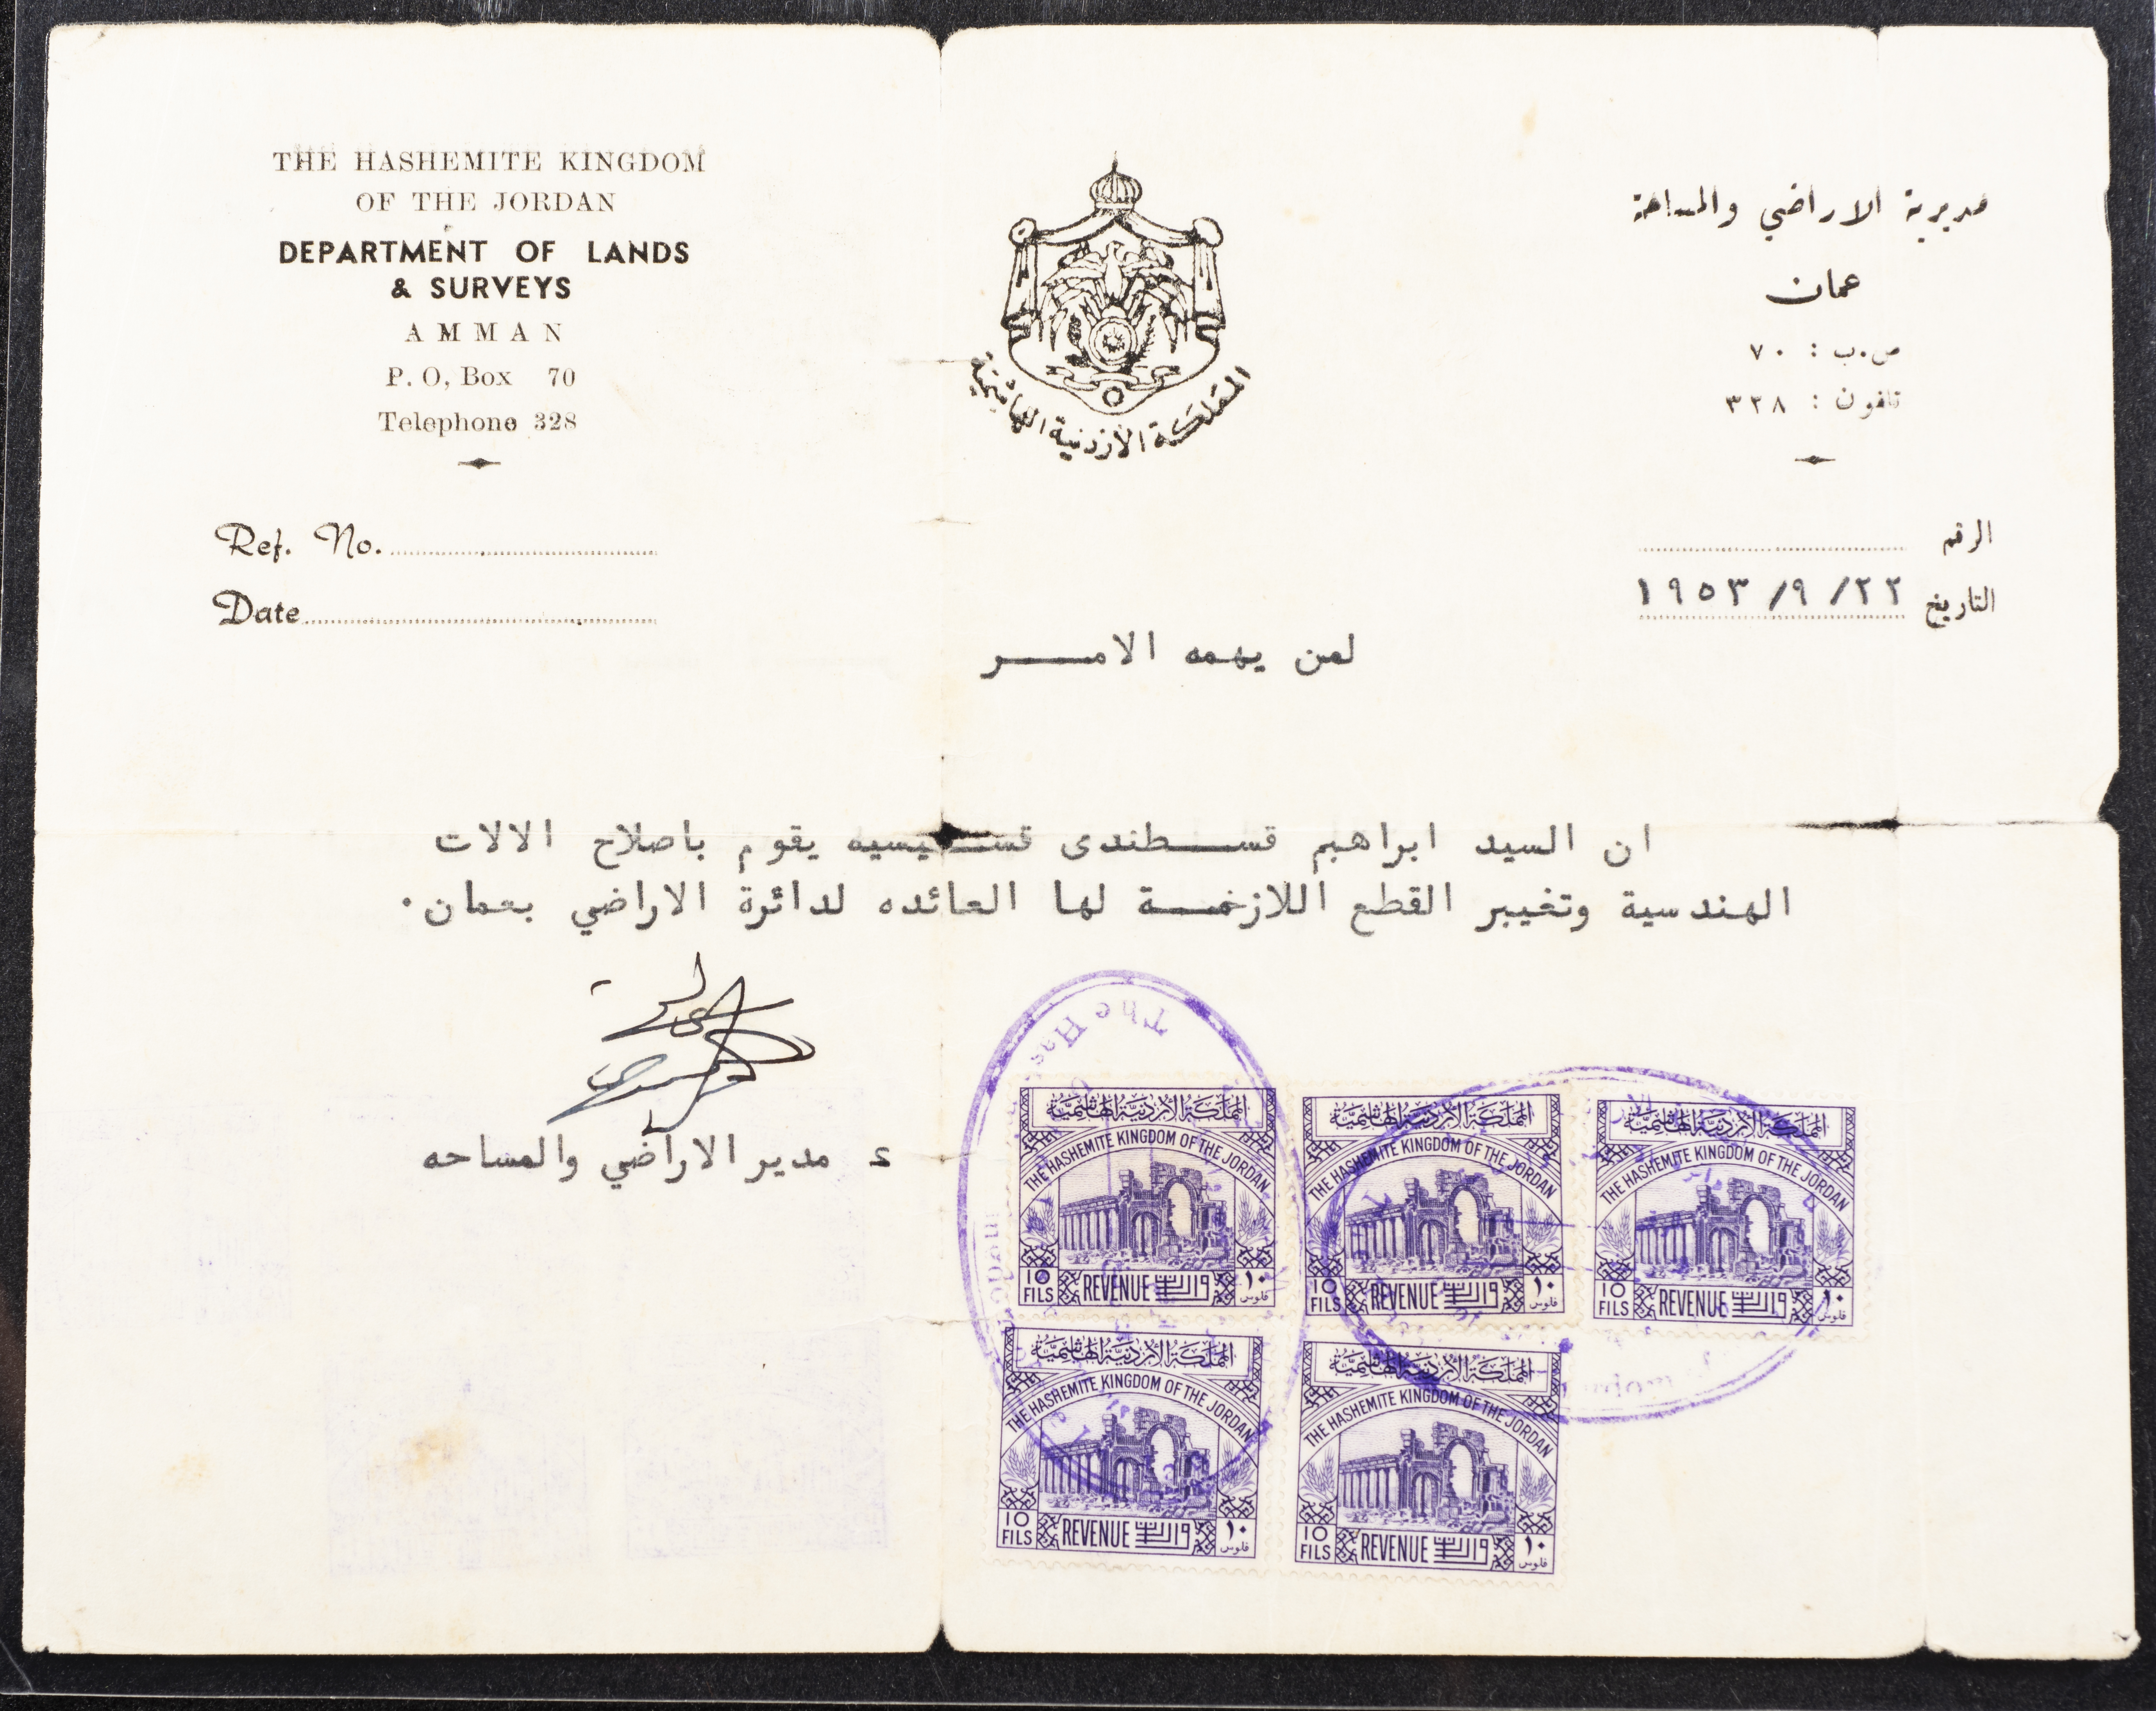 THE HASHEMITE KINGDOM
OF THE JORDAN
DEPARTMENT OF LANDS
& SURVEYS
AMMAN
P. O, Box 70
Telephone 328
Ref. No.
Date
المملكة الأردنية الهاشمية
مديرية الاراضي والمساحة
عمان
ص.ب : ٧٠
تلفون : ٣٢٨
الرقم
التاريخ ٢٢/ ٩/ ١٩٥٣
لمن يهمه الامر
ان السيد ابراهيم قسطندى يقوم باصلاح الالات
الهندسية وتغيير القطع اللازمة لها العائده لدائرة الاراضي بعمان.
ع مدير الاراضي والمساحه
The Has
المملكة الأردنية الهاشمية
THE HASHEMITE KINGDOM OF THE JORDAN
10 FILS REVENUE واردات ١٠ فلوس
المملكة الأردنية الهاشمية
THE HASHEMITE KINGDOM OF THE JORDAN
10 FILS REVENUE واردات ١٠ فلوس
المملكة الأردنية الهاشمية
THE HASHEMITE KINGDOM OF THE JORDAN
10 FILS REVENUE واردات ١٠ فلوس
المملكة الأردنية الهاشمية
THE HASHEMITE KINGDOM OF THE JORDAN
10 FILS REVENUE واردات ١٠ فلوس
المملكة الأردنية الهاشمية
THE HASHEMITE KINGDOM OF THE JORDAN
10 FILS REVENUE واردات ١٠ فلوس